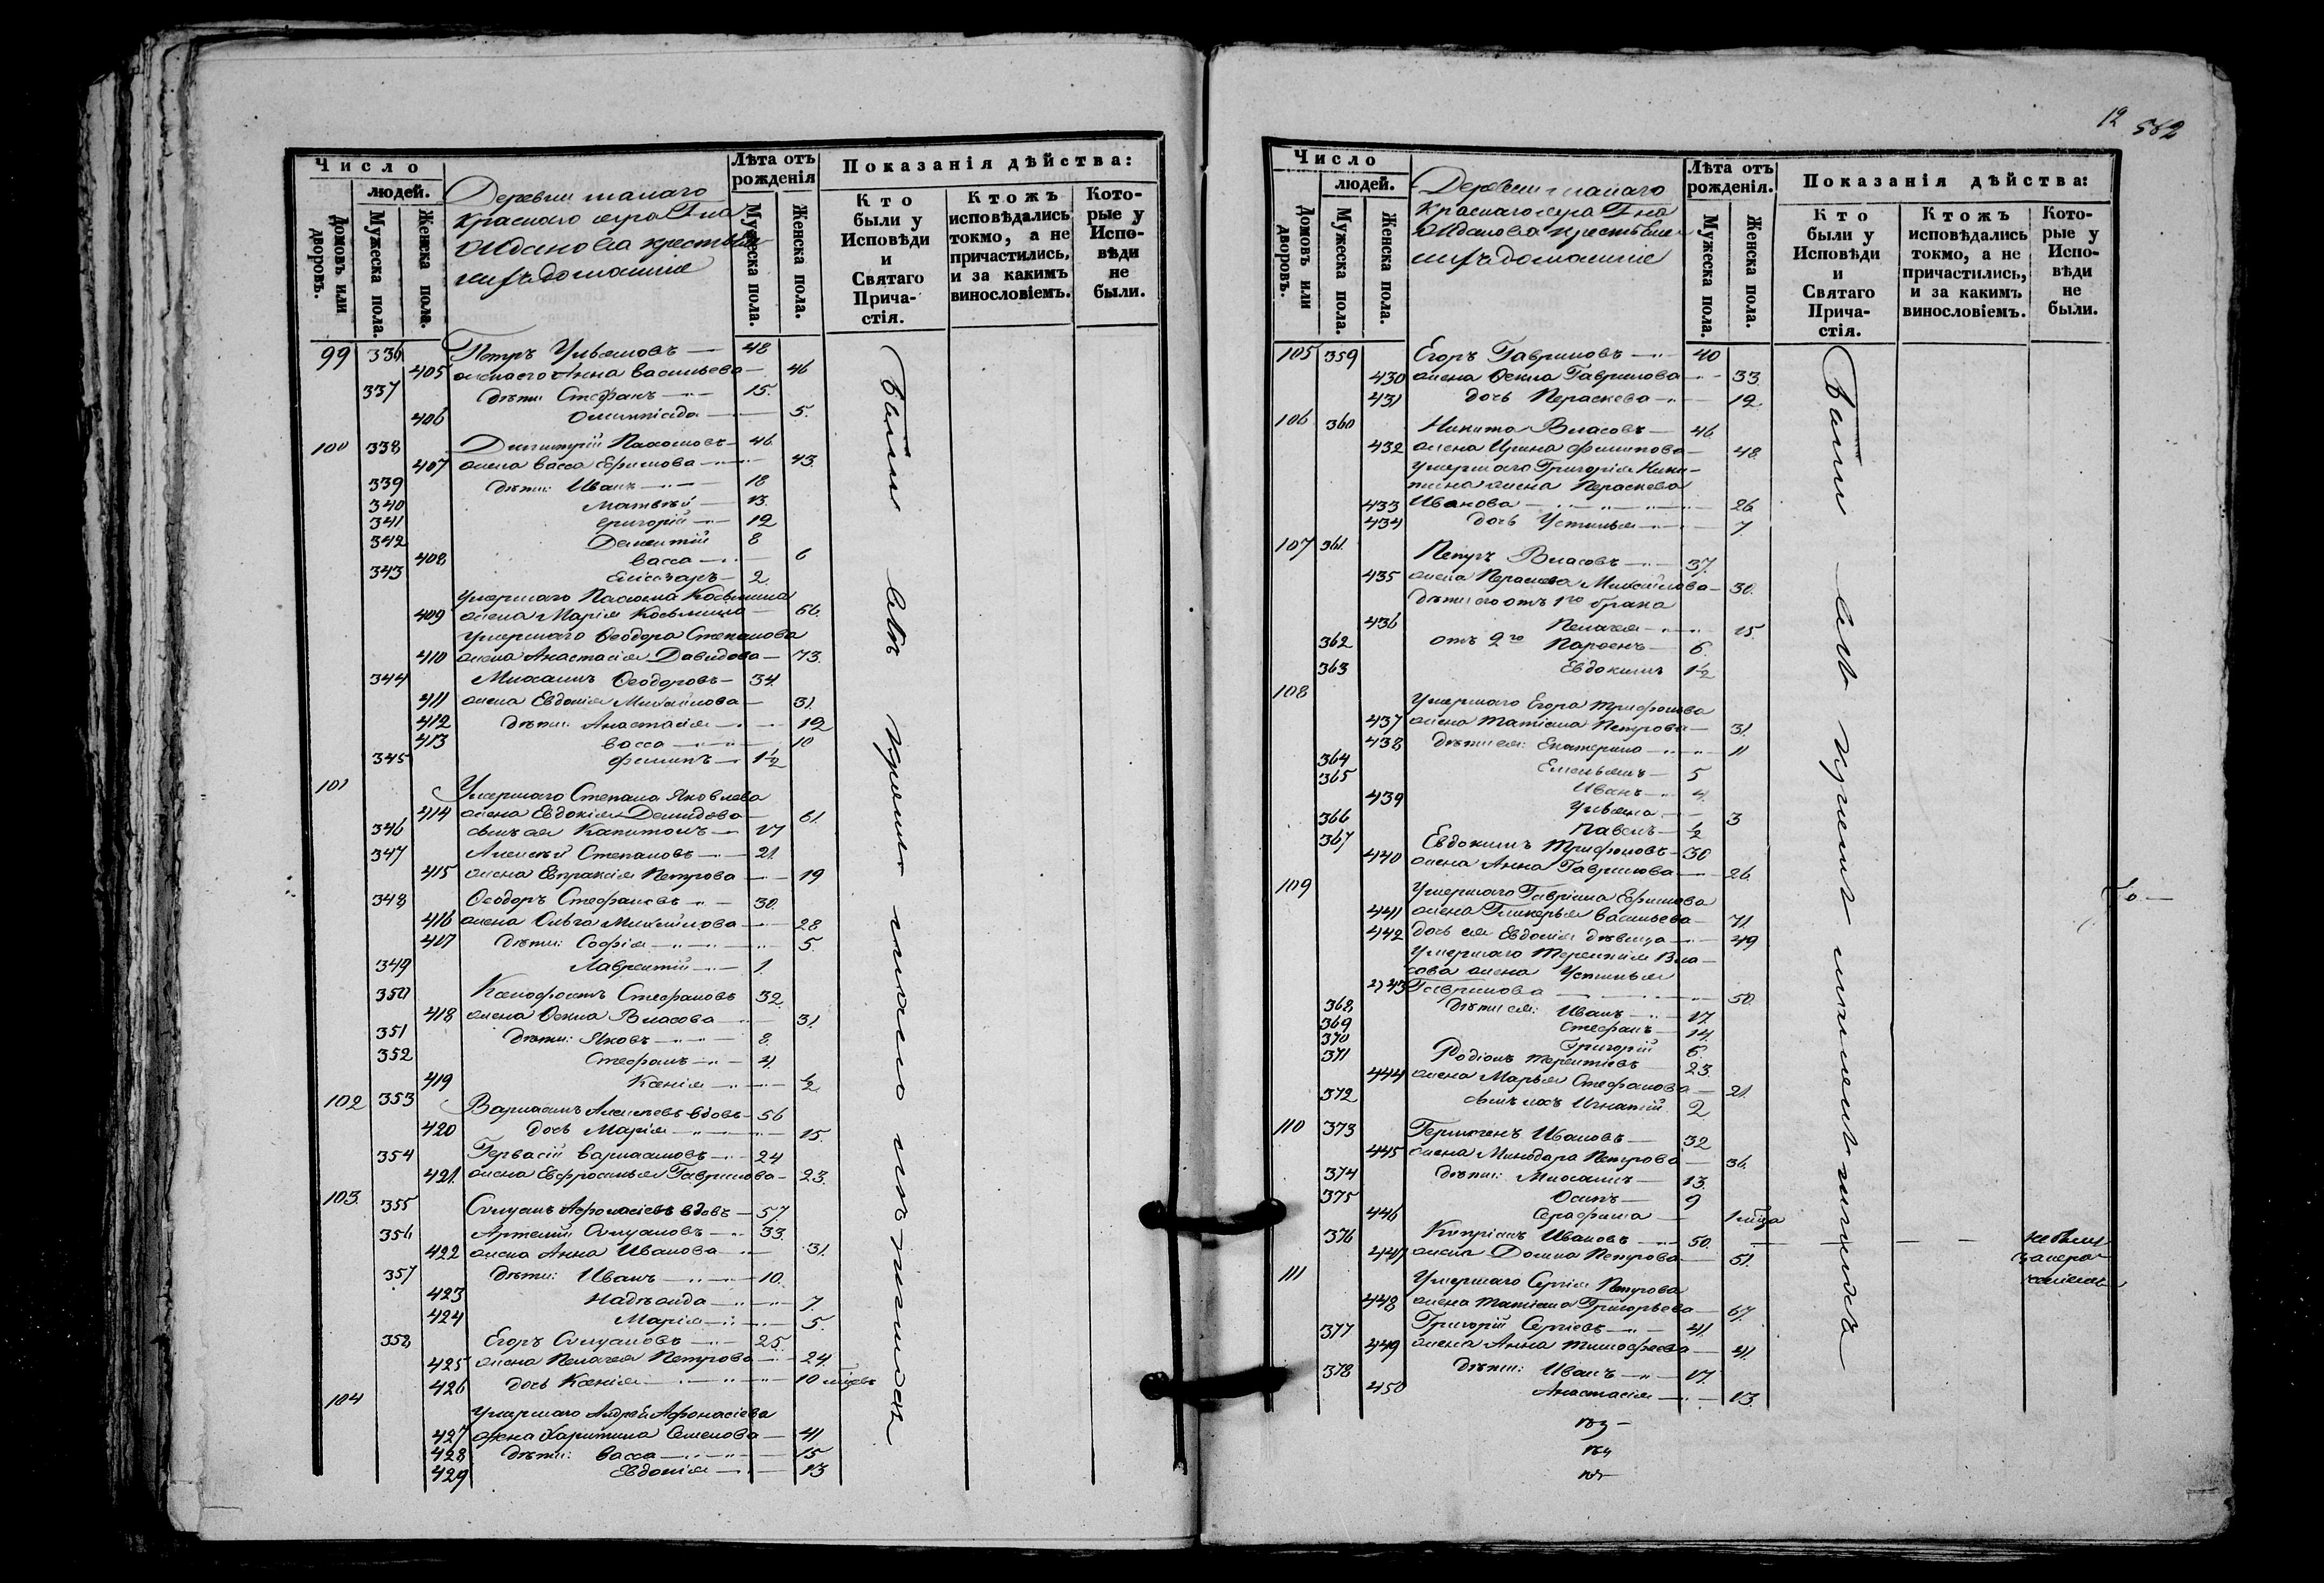 Число
людей.
Домовъ или дворовъ.
Мужеска пола.
Женска пола.
Деревни малаго
краснаго
крестьяне
ихъ домашніе
Лѣта отъ рожденія
Мужеска пола.
Женска пола.
Показанія дѣйства:
Кто были у Исповѣди и Святаго Причастія.
Ктожъ исповѣдались токмо, а не причастились, и за какимъ винословіемъ.
Которые у Исповѣди не были.
99 336 Петръ Ульяновъ 48
405 жена его Анна Васильева 46
337 дѣти: Стефанъ 15.
406 Олимпіада 5.
100 338 Димитрій Пахомовъ 46
407 жена Васса Ефимова 43.
339 дѣти: Иванъ 18
340 Матвѣй 13.
341 Григорій 12
342 Дементій 8
408 Васса 6
343 Елисѣаръ 2.
умершаго Пахома Козьмина
409 жена Марія Козьмина 66.
умершаго Ѳеодора Степанова
410 жена Анастасія Давидова 73.
344 Михаилъ Ѳеодоровъ 34.
411 жена Евдокія Михайлова 31.
412 дѣти: Анастасія 12
413 Васса 10
345 Филипъ 1½
101 Умершаго Степана Яковлева
414 жена Евдокія Демидова 61.
346 сынъ ея Капитонъ 17
347 Алексѣй Степановъ 21.
415 жена Евпраксія Петрова 19
348 Ѳеодоръ Стефановъ 30.
416 жена Ольга Михайлова 28
417 дѣти: Софія 5.
349 Лаврентій 1.
350 Ксенофонтъ Стефановъ 32.
418 жена Ѳекла Власова 31.
351 дѣти: Яковъ 8.
352 Стефанъ 4.
419 Ксенія ½
102 353 Варлаамъ Алексѣевъ вдовъ 56
420 дочь Марія 15.
354 Гервасій Варлаамовъ 24
421. жена Евфросинья Гаврилова 23.
103. 355 Силуанъ Афонасіевъ вдовъ 57.
356 Артемій Силуановъ 33.
422 жена Анна Иванова 31.
357 дѣти: Иванъ 10.
423 Надѣжда 7.
424 Марія 5.
358 Егоръ Силуановъ 25.
425 жена Пелагея Петрова 24.
426 дочь Ксенія 10
104 Умершаго Андрея Афонасіева
427 жена Харитина Семенова 41
428 дѣти: Васса 15
429 Евдокія 13
Были всѣ
12 582
Число
людей.
Домовъ или дворовъ.
Мужеска пола.
Женска пола.
Деревни малаго
краснаго
крестьяне
ихъ домашніе
Лѣта отъ рожденія.
Мужеска пола.
Женска пола.
Показанія дѣйства:
Кто были у Исповѣди и Святаго Причастія.
Ктожъ исповѣдались токмо, а не причастились, и за какимъ винословіемъ.
Которые у Исповѣди не были.
105 359 Егоръ Гавриловъ 40
430 жена Ѳекла Гаврилова 33.
431 дочь Параскева 12
106 360 Никита Власовъ 46.
432 жена Ирина Филипова 48.
умершаго Григорія Ники-
тина жена Параскева
433 Иванова 26
434 дочь Устинья 7.
107 361. Петръ Власовъ 37.
435 жена Параскева Михайлова 30.
дѣти его отъ 1го брака
436 Пелагея 15.
362 отъ 2го Парѳенъ 6.
363 Евдокимъ 1½
108 Умершаго Егора Трифонова
437 жена Татіана Петрова 31.
438 дѣти ея: Екатерина 11
364 Емельянъ 5
365 Иванъ 4.
439 Ульяна 3
366 Павелъ ½
367 Евдокимъ Трифоновъ 30
440 жена Анна Гаврилова 26.
109 Умершаго Гавріила Ефимова
441 жена Гликерья Васильева 71.
442 дочь ея Евдокія дѣвица 49
Умершаго Терентія Вла-
сова жена Устинья
443 Гаврилова 50.
368 дѣти ея: Иванъ 17.
369 Стефанъ 14.
370 Григорій 6.
371 Родіонъ Терентіевъ 23.
444 жена Марья Стефанова 21.
372 сынъ ихъ Игнатій 2
110 373 Гермогенъ Ивановъ 32
445 жена Минодора Петрова 36.
374 дѣти: Михаилъ 13.
375 Осипъ 9
446 Серафима 1
376 Кипріанъ Ивановъ 50.
447 жена Домна Петрова 51.
не были
111 Умершаго Сергія Петрова
448 жена Татіана Григорьева 67.
377 Григорій Сергіевъ 41.
449 жена Анна Тимофеева 41.
378 дѣти: Иванъ 17.
450 Анастасія 13.
Были всѣ